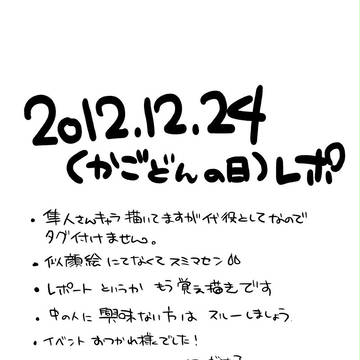 2012.12.24
(かごどんの日)レポ
・隼人さんキャラ描いてますが代役としてなので
タグ付けません。
・似顔絵にてなくてスミマセン
・レポートというか もう覚え描きです
・中の人に興味ない方は スルーしましょう
・イベントおつかれ様でした!